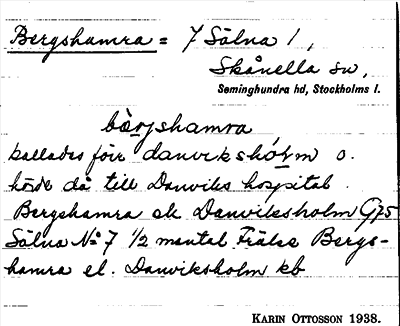 Bergshamra = 7 Sälna 1,
Skånella sn,
Seminghundra hd, Stockholms l.
bärjshamra
kallades förr danvikshólm o.
hörde då till Danviks hospital.
Bergshamra ek Danviksholm G75
Sälna No 7 1/2 mantal Frälse Bergs-
hamra el. Danviksholm kb
KARIN OTTOSSON 1938.